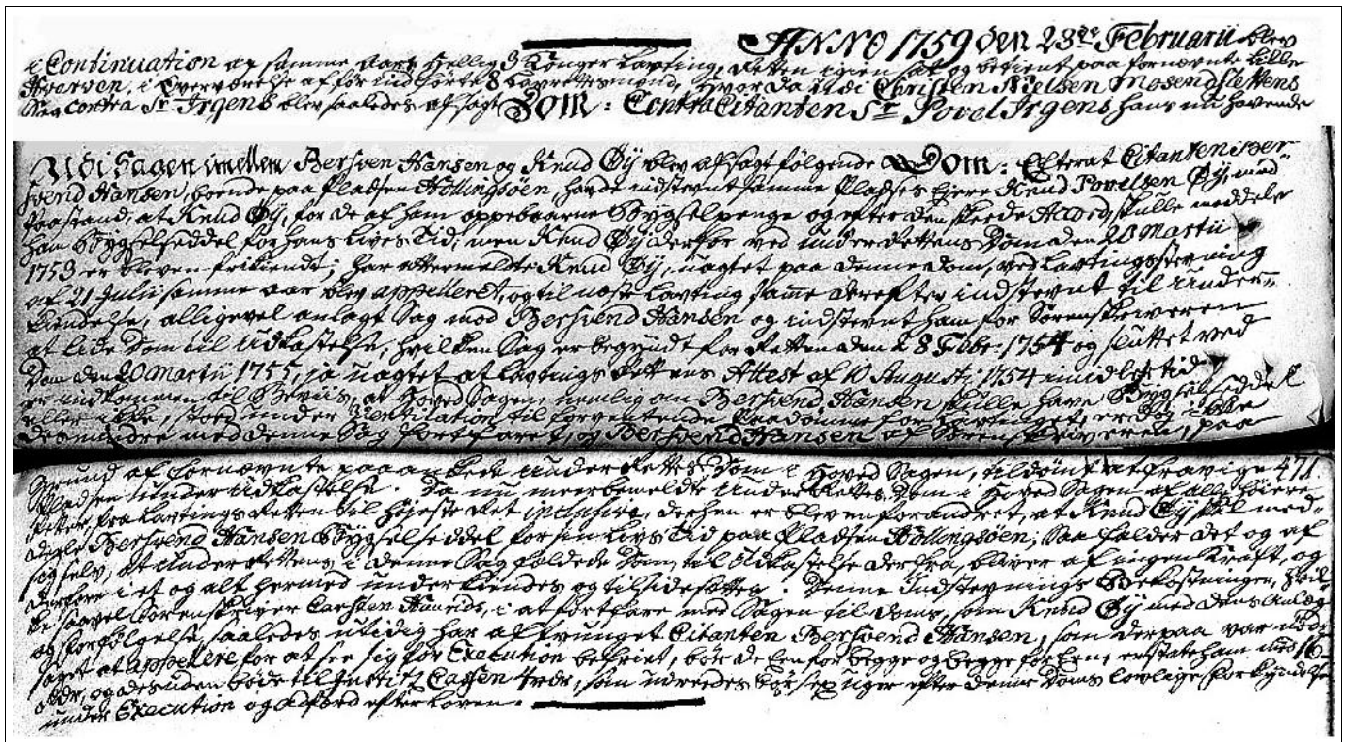 ANNO 1759 den 23de Februarii blev
i Continuation af samme Aars Hellig 3 Konger Laugting, Retten igien sat og betient paa fornævnte Lille
Hvarven, i Overværelse af før indførte 8 Laugrettesmænd, hvor da udi Christen Nielsen Mosendslettens
Sag Contra Sr Irgens blev saaledes afsagt Dom: Contra Citanten Sr Povel Irgens hans nu havende
Udi Sagen imellem Bersven Hansen og Knud Øÿ blev afsagt følgende Dom: Efterat Citanten Ber-
svend Hansen, boende paa Pladsen Hollingsøen, havde indstevnt samme Pladses Ejere Knud Povelsen Øÿ, med
Paastand, at Knud Øÿ, for de af ham oppebaarne Bÿgselpenge og efter den skeede Accord skulle meddele
ham Bÿgselseddel for hans Lives Tid; men Knud Øÿ derfor ved underRettens Dom den 20 Martii
1753 er bleven frikiendt; har ottermeldte Knud Øÿ, uagtet paa denne Dom, ved Laugtingsstevning
af 21 Julii samme aar blev appelleret, og til næste Laugting samme derefter indstevnt til Under-
kiendelse, alligevel anlagt Sag mod Bersvend Hansen og indstevnt ham for Sorenskriveren
at lide Dom til Udkastelse, hvilken Sag er begyndt for Retten den 28 Febr. 1754 og sluttet ved
Dom den 20 Martii 1755, ja uagtet at Laugtings Rettens Attest af 10 Augusti 1754 imidlertid
er indkommen til Beviis, at Hoved Sagen, nemlig om Bersvend Hansen skulle have Bÿgselseddel
eller ikke, stoed under Ventilation til forventende Paadømme for Laugtinget, er dog ikke
desmindre med denne Sag fortfaret, og Bersvend Hansen af Sorenskriveren, paa
Grund af fornævnte paaankede UnderRettes Dom i Hoved Sagen, tildømt at fravige 471
Pladsen under Udkastelse. Da nu meerbemeldte UnderRettes Dom i Hoved Sagen af alle høiere
Retter, fra Laugtings Retten til Højeste Ret inclusive, derhen er bleven forandret, at Knud Øÿ skal med-
deele Bersvend Hansen Bÿgselseddel for sin Livs Tid paa Pladsen Hollingsøen; Saa falder det og af
sig selv, at UnderRettens i denne Sag fældede Dom, til Udkastelse derfra, bliver af ingen Kraft, og
derfore i et og alt hermed underkiendes og tilsidesættes. Denne Indstevnings Bekostninger,
saavel Sorenskriver Carsten i at fortfare med Sagen til Doms, som Knud Øÿ med dens Anlæg
og forfølgelse, saaledes utidig har aftvunget Citanten Bersvend Hansen, som derpaa var nød-
saget at appellere for at see sig for Execution befriet, bør de Een for begge og begge for Een, erstatte ham med 16
rdr, og desuden bøde til Justitz Cassen 4 rdr, som udreedes bør sex uger efter denne Doms lovlige Forkÿndelse
under Execution og Adfærd efter Loven.